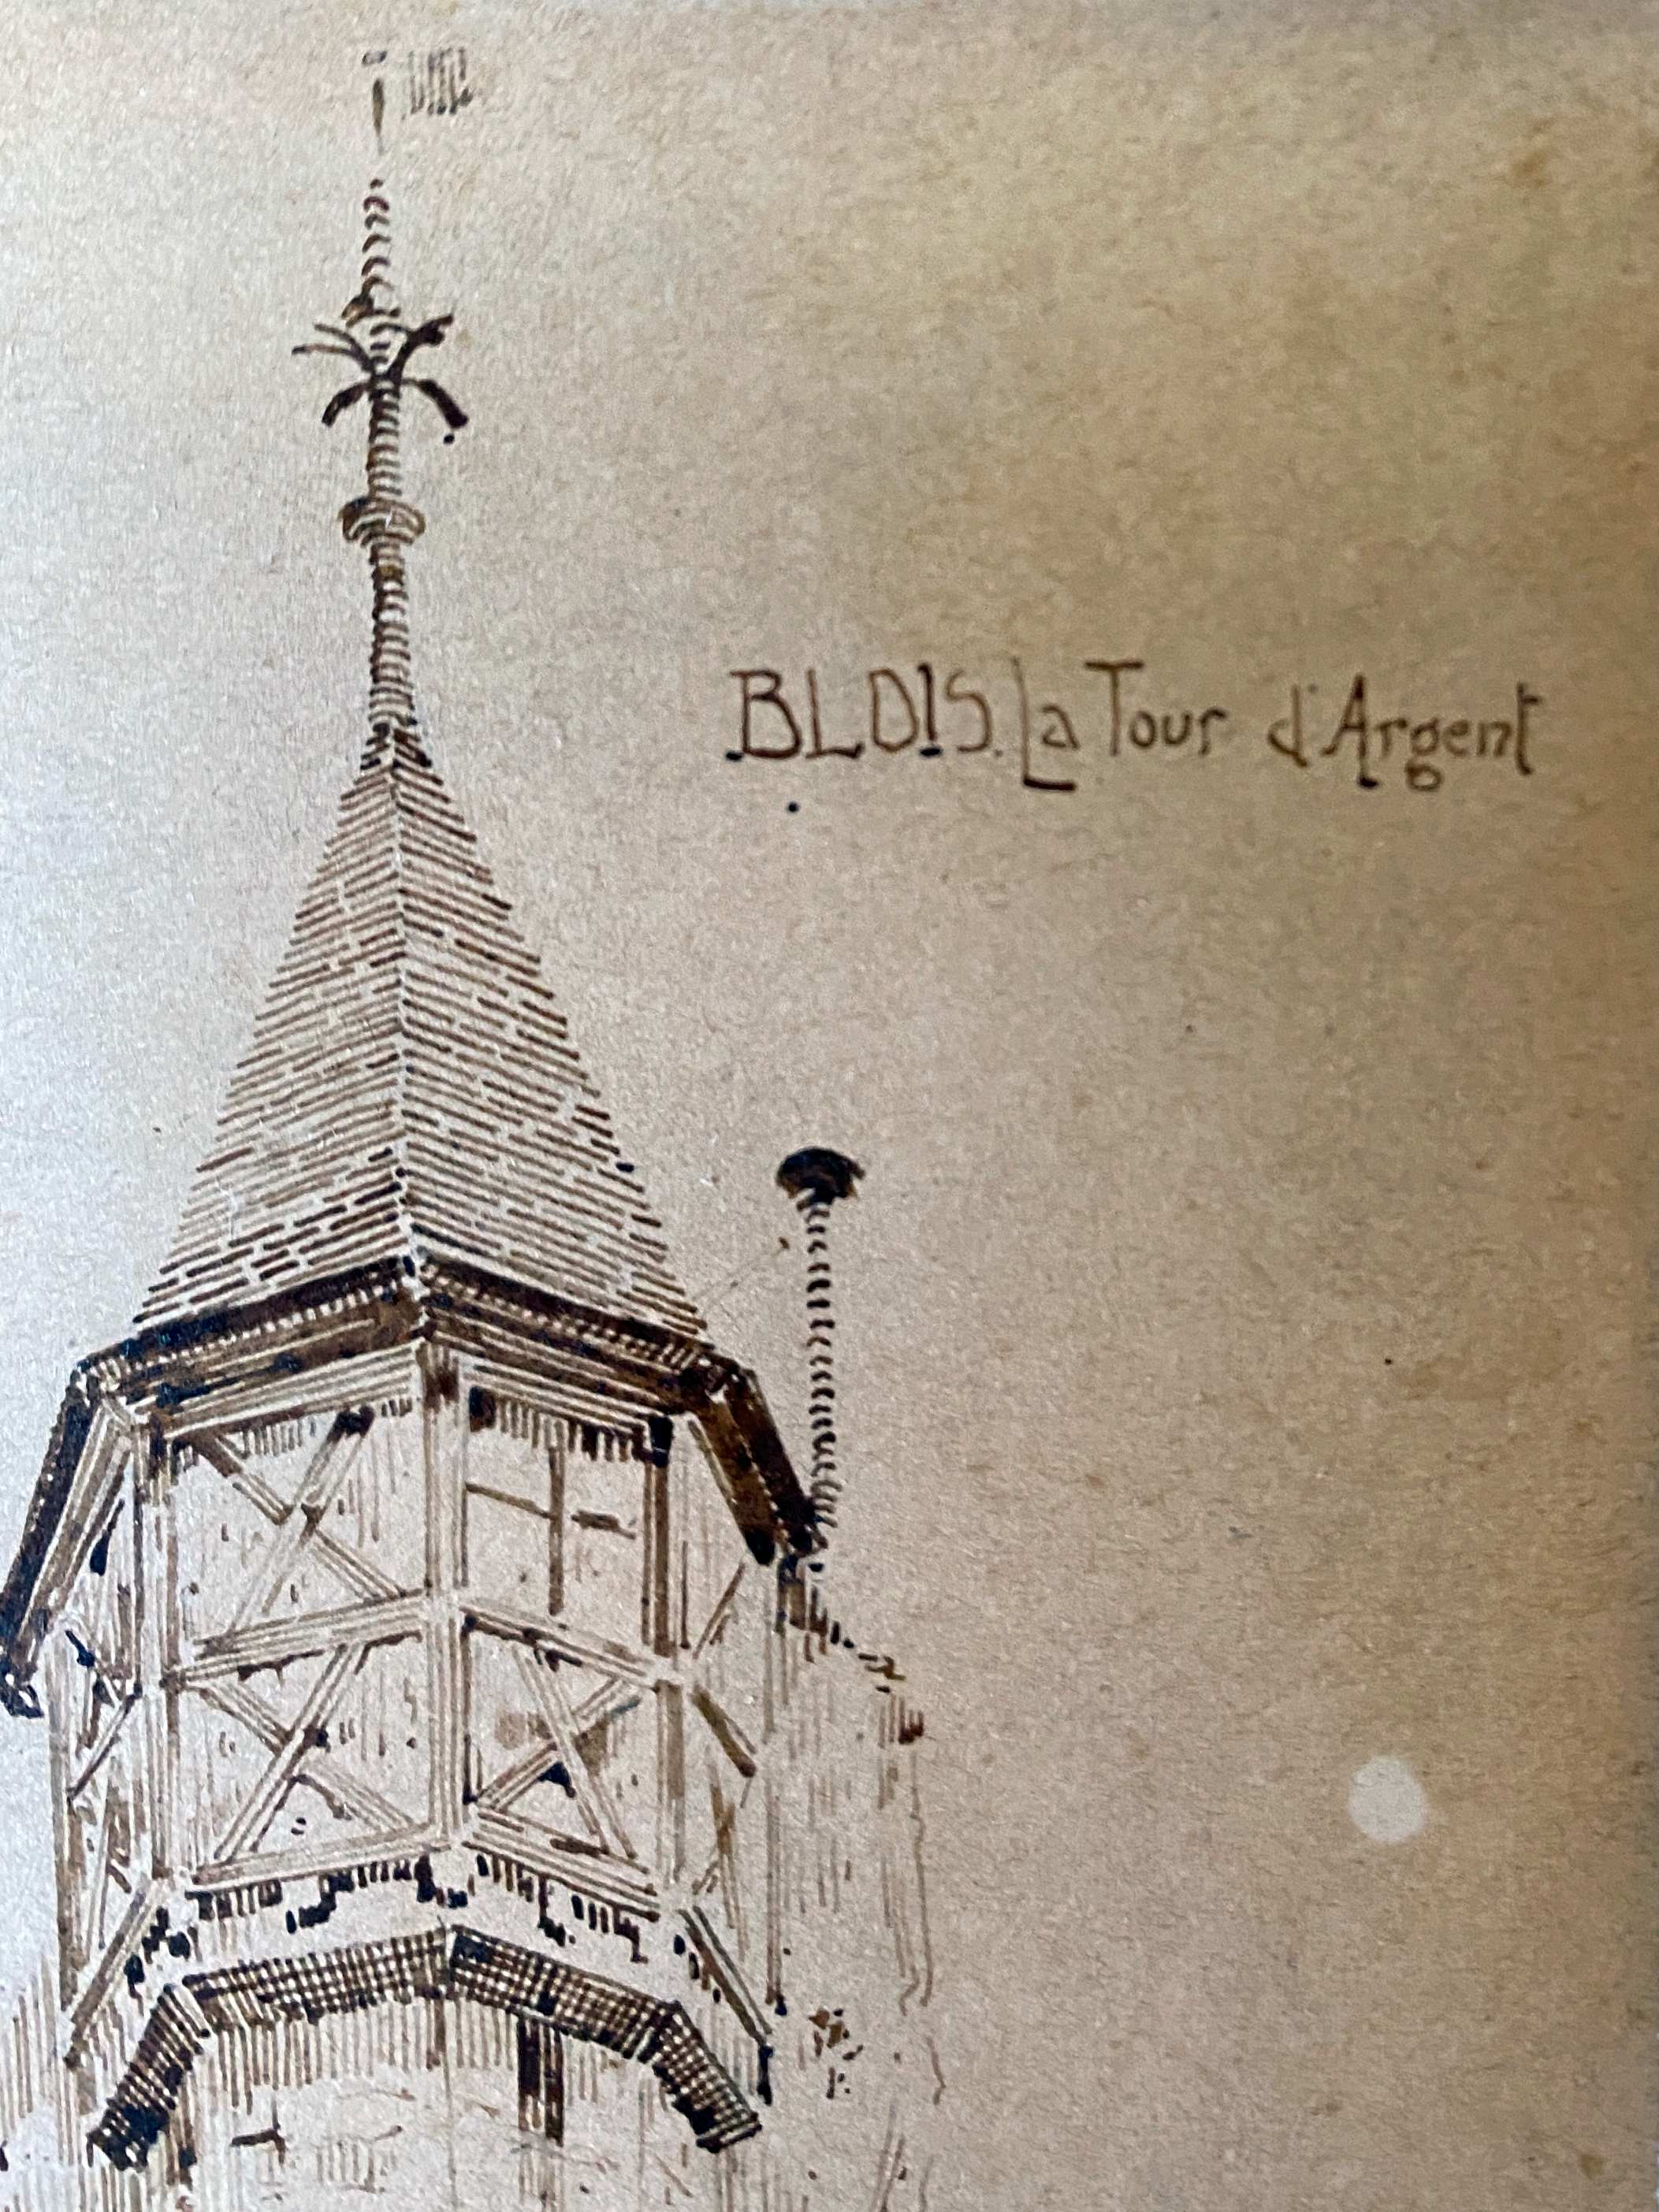 BLOIS. La Tour d'Argent